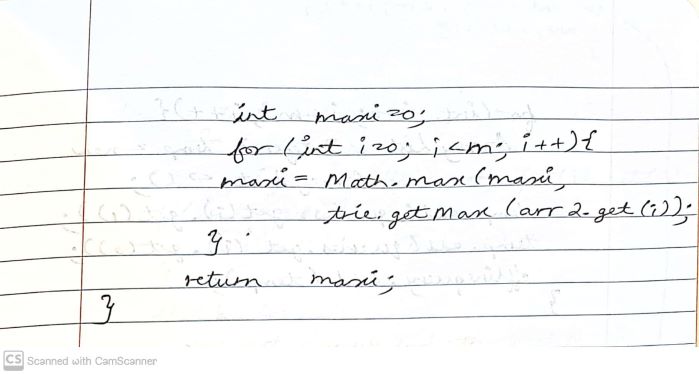 int maxi=0;
for (int i=0; i<m; i++){
maxi = Math.max (maxi,
trie.getMax (arr2.get(i));
}
return maxi;
}
CS Scanned with CamScanner